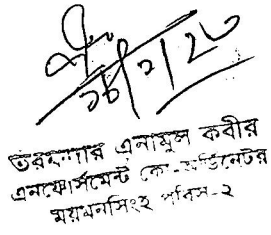 ১৮/২/২৩
তরফদার এনামুল কবীর
এনফোর্সমেন্ট কো-অর্ডিনেটর
ময়মনসিংহ পবিস-২